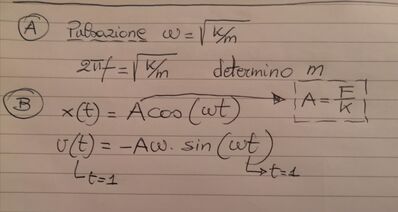 A Pulsazione ω = √k/m
2πf = √k/m determino m
B x(t) = A cos (ωt) → A = F/K
v(t) = -Aω · sin (ωt)
t=1 t=1